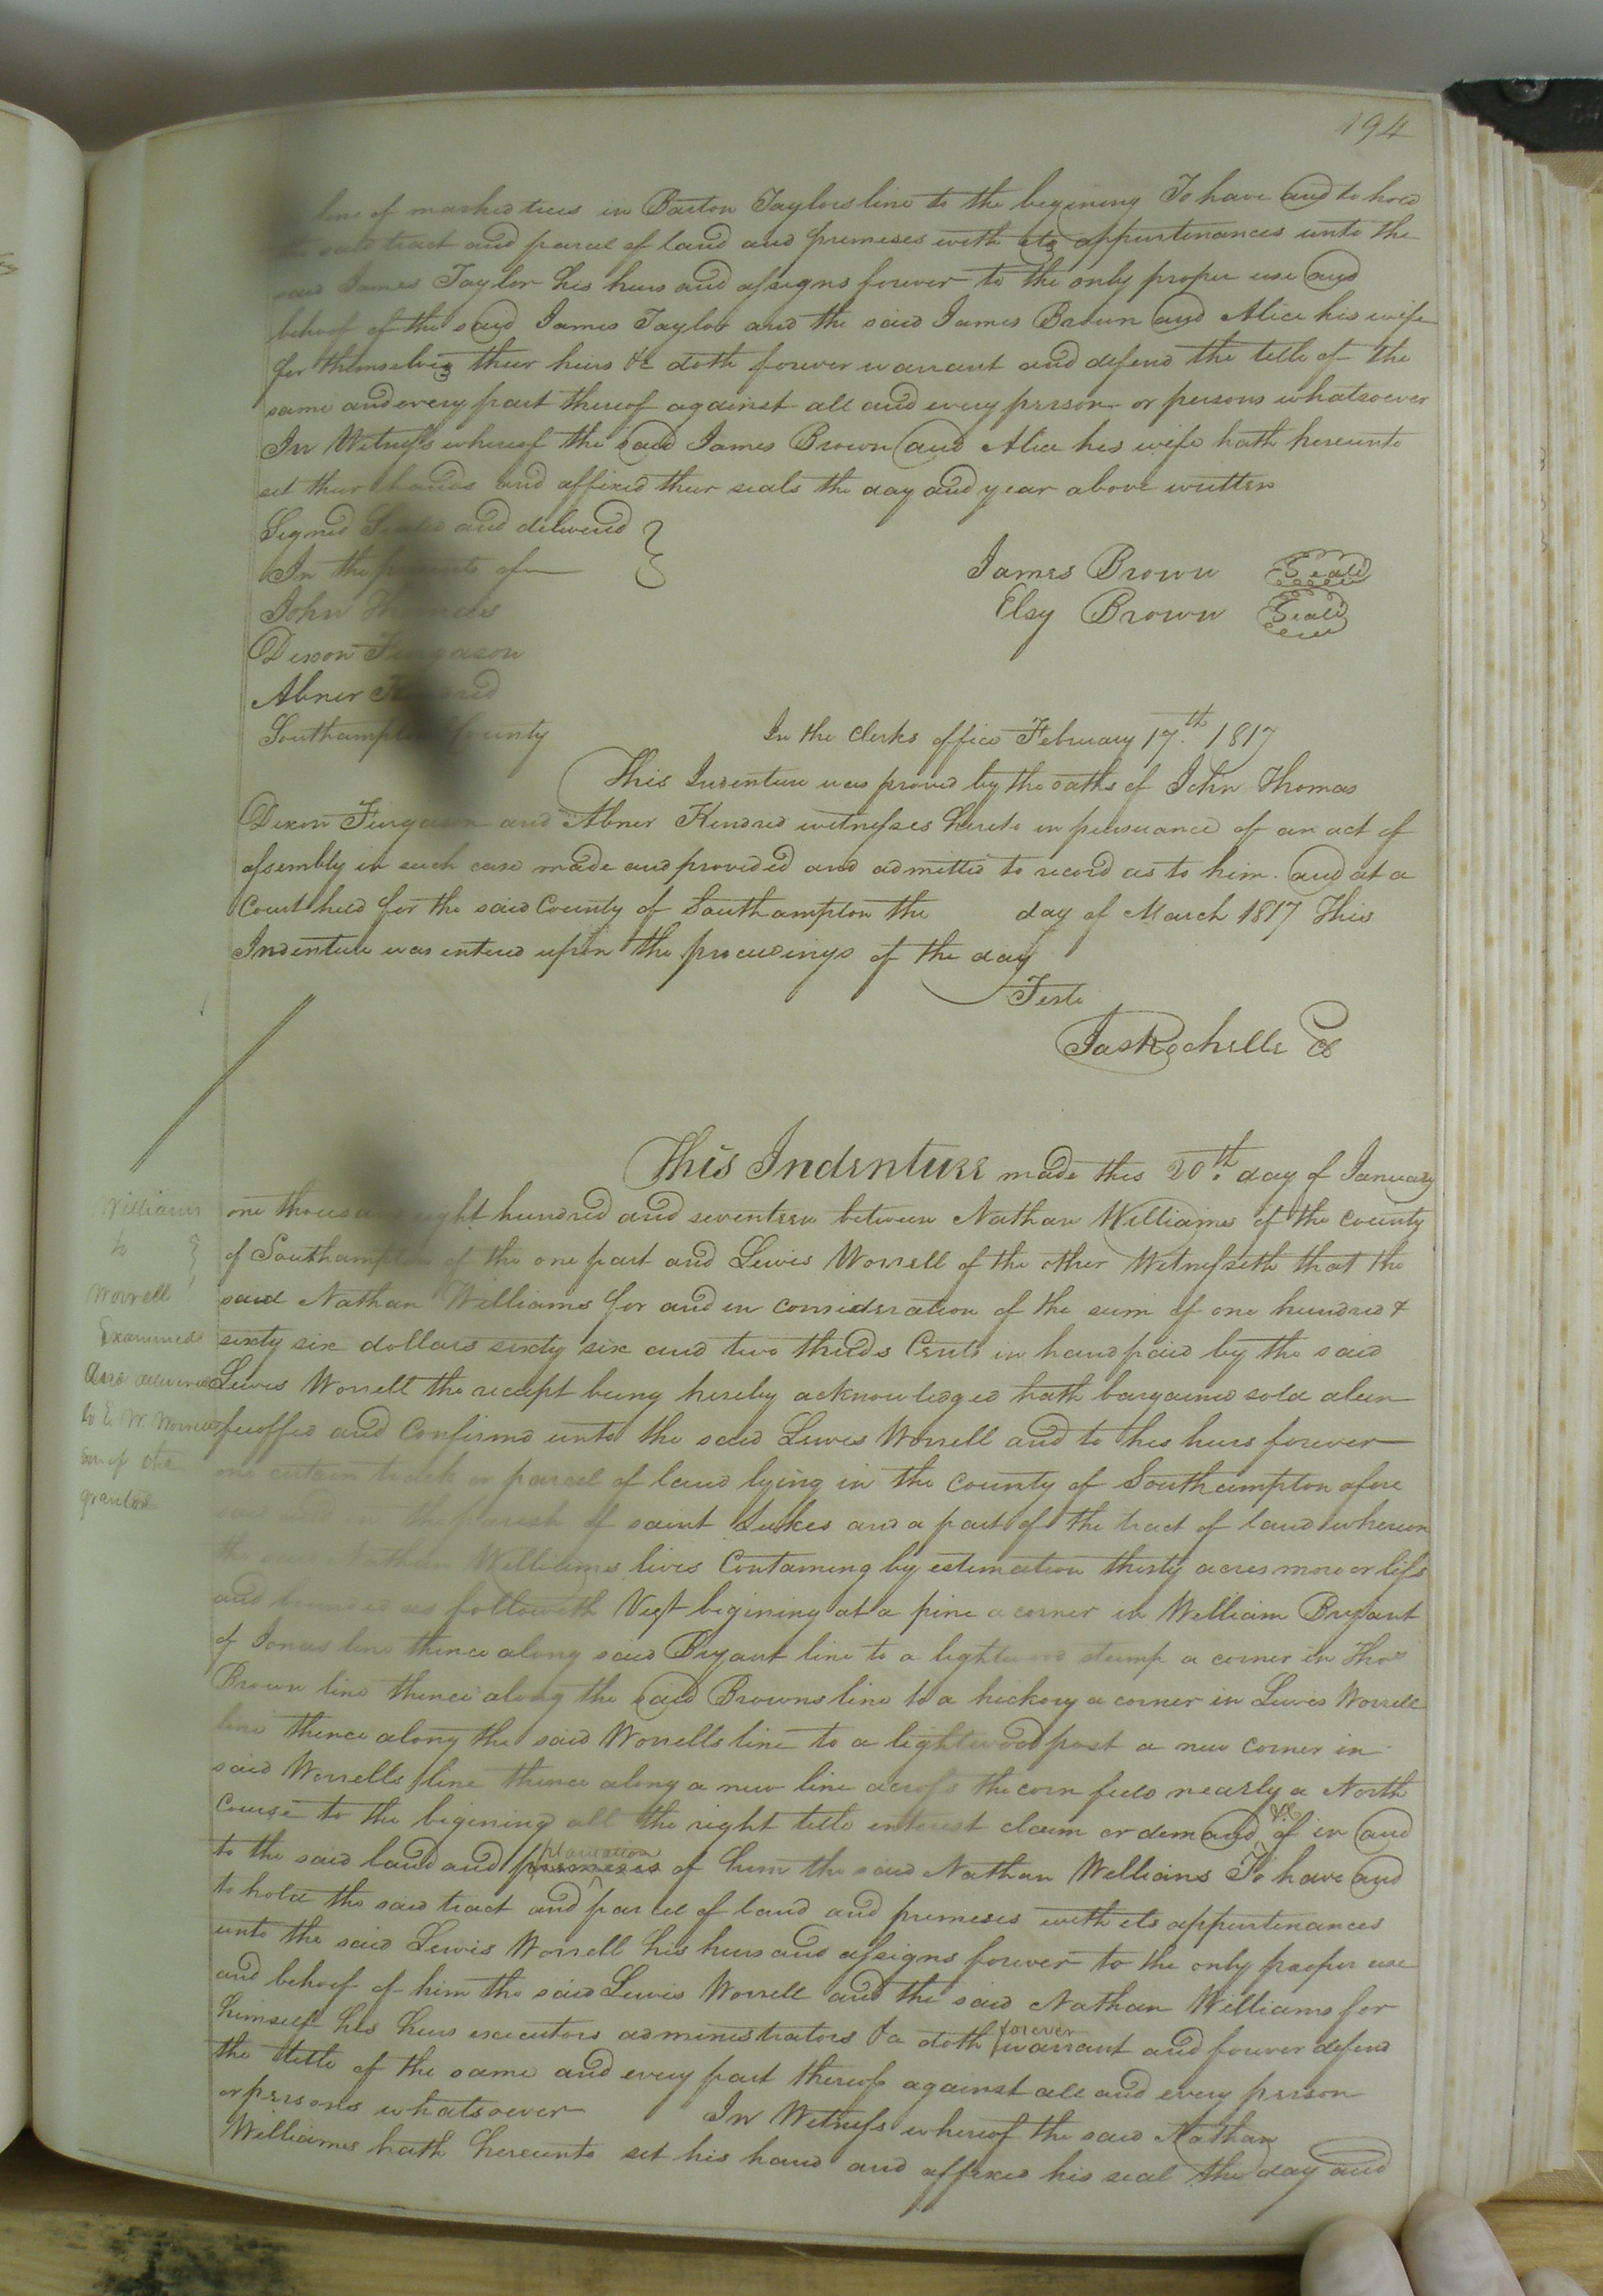 194
line of marked trees in Barton Taylors line to the begining To have and to hold
said tract and parcel of land and premeses with its appurtenances unto the
said James Taylor his heirs and assigns forever to the only proper use and
behoof of the said James Taylor and the said James Brown and Alice his wife
for themselves their heirs &c doth forever warrant and defend the title of the
same and every part thereof against all and every person or persons whatsoever
In Witness whereof the said James Brown and Alice his wife hath hereunto
set their hands and affixed their seals the day and year above written
Signed Sealed and delivered
In the presents of
James Brown Seal
John Thomas
Elsy Brown Seal
Dixon Furgason
Abner Kindred
Southampton County
In the Clerks office February 17th 1817
This Indenture was proved by the oaths of John Thomas
Dixon Furgason and Abner Kindred witnesses hereto in persuance of an act of
assembly in such case made and provided and admitted to record as to him. and at a
Court held for the said County of Southampton the day of March 1817 This
Indenture was entered upon the proceedings of the day
Teste
Jas Rochelle
This Indenture made this 20th day of January
Williams
to
Worrell
Examined
and delivered
to E. W. Worrell
son of the
grantee
one thousand eight hundred and seventeen between Nathan Williams of the County
of Southampton of the one part and Lewis Worrell of the other Witnesseth that the
said Nathan Williams for and in consideration of the sum of one hundred &
sixty six dollars sixty six and two thirds Cents in hand paid by the said
Lewis Worrell the receipt being hereby acknowledged hath bargained sold alien
feoffed and Confirmd unto the said Lewis Worrell and to his heirs forever
one certain track or parcel of land lying in the County of Southampton afore
said and in the parish of saint Lukes and a part of the tract of land whereon
the said Nathan Williams lives Containing by estimation thirty acres more or less
and bounded as followeth Vizt begining at a pine a corner in William Bryant
of Jones line thence along said Bryant line to a lightwood stump a corner in Thos
Brown line thence along the said Browns line to a hickory a corner in Lewis Worrell
line thence along the said Worrells line to a lightwood post a new corner in
said Worrells line thence along a new line across the corn field nearly a North
Course to the begining all the right title enterest claim or demand &c of in and
to the said land and plantation premeses of him the said Nathan Williams To have and
to hold the said tract and parcel of land and premeses with its appurtenances
unto the said Lewis Worrell his heirs and assigns forever to the only proper use
and behoof of him the said Lewis Worrell and the said Nathan Williams for
himself his heirs executors administrators &a doth forever warrant and forever defend
the title of the same and every part thereof against all and every person
or persons whatsoever In Witness whereof the said Nathan
Williams hath hereunto set his hand and affixed his seal the day and